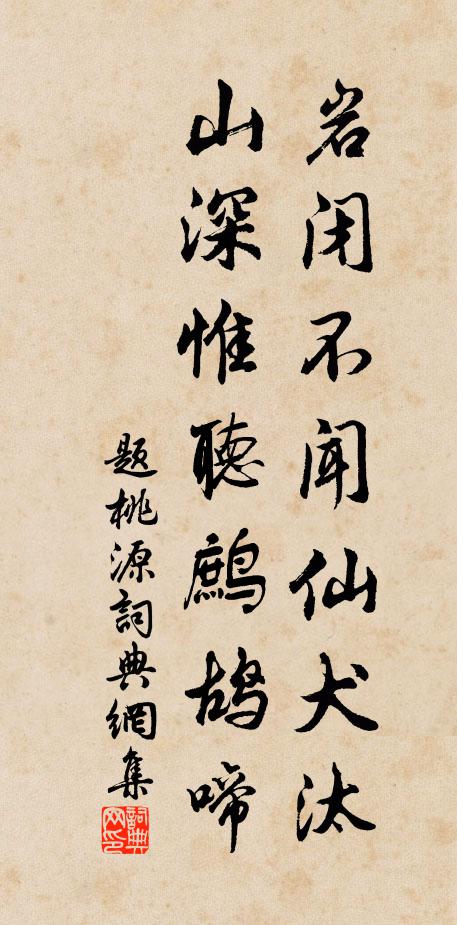 岩闭不闻仙犬汰
山深惟聽鷓鸪啼
題桃源詞典網集
詞典網印